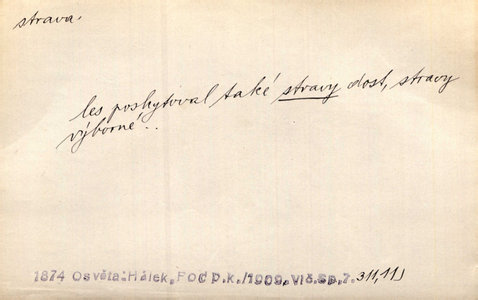 strava.
les poskytoval také stravy dost, stravy
výborné..
1874 Osvěta: Hálek, Pod p.k./1909, Vlč.Sp.7. 311,11